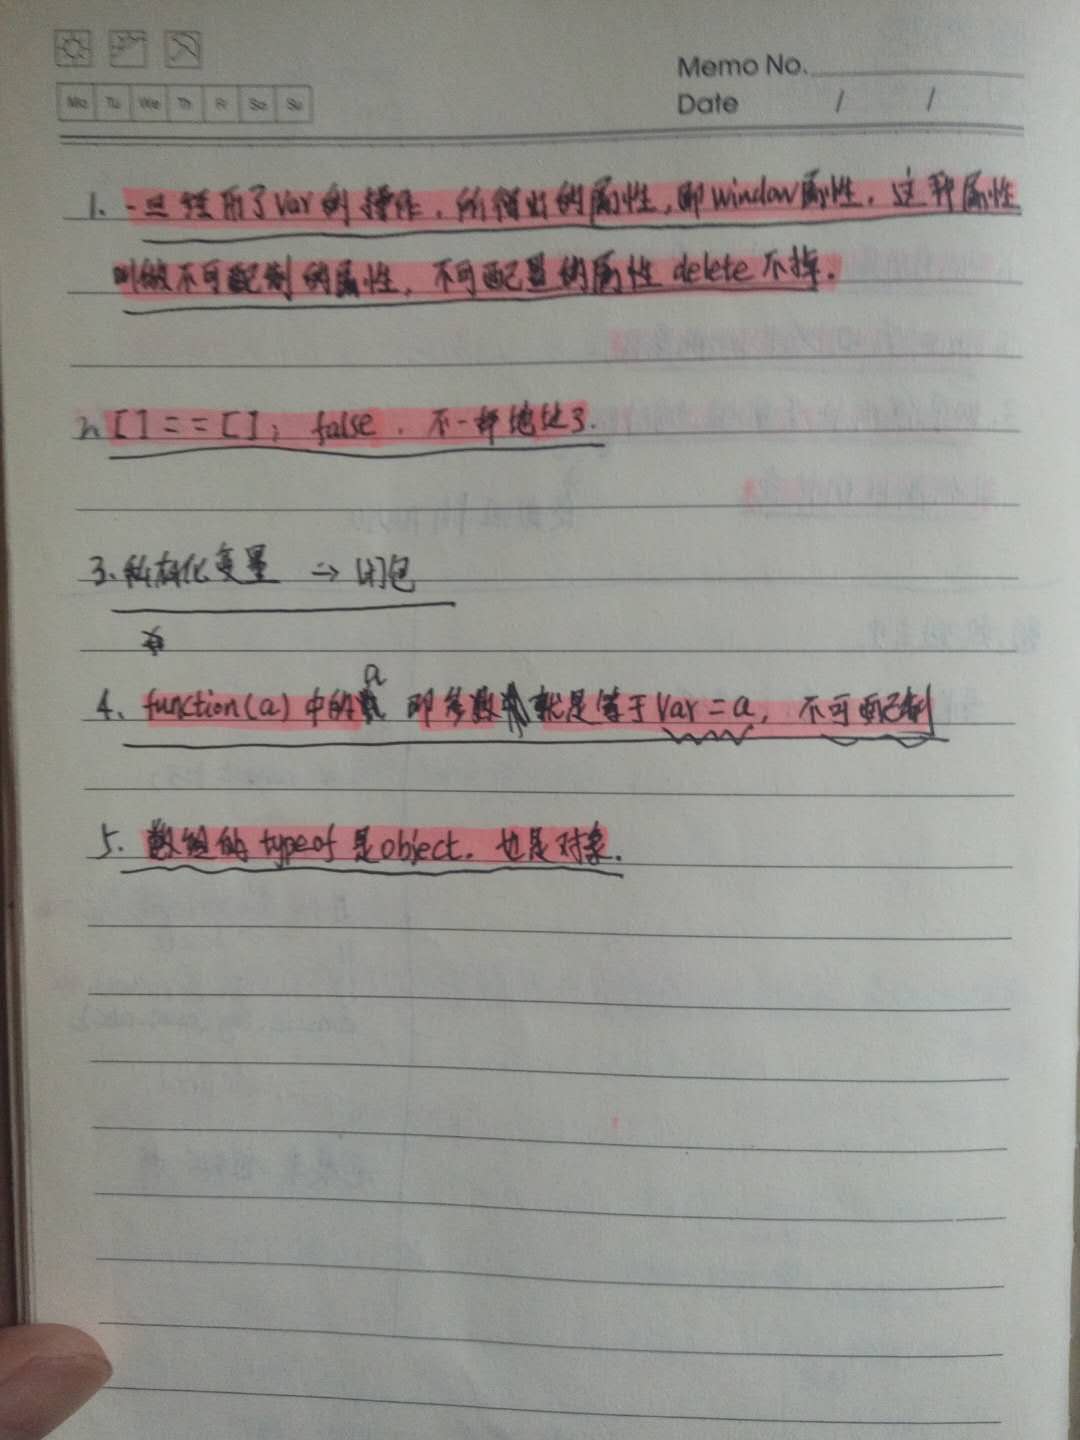 Memo No.
Mo Tu We Th Fr Sa Su
Date / /
1. 一旦经历了var的操作，所得出的属性，即window属性，这种属性
叫做不可配制的属性，不可配置的属性delete不掉.
2. [] == []; false . 不一样地址了.
3. 私有化变量 → 闭包
4. function(a) 中的a 即参数 就是等于 var = a, 不可配制
5. 数组的 typeof 是object. 也是对象.